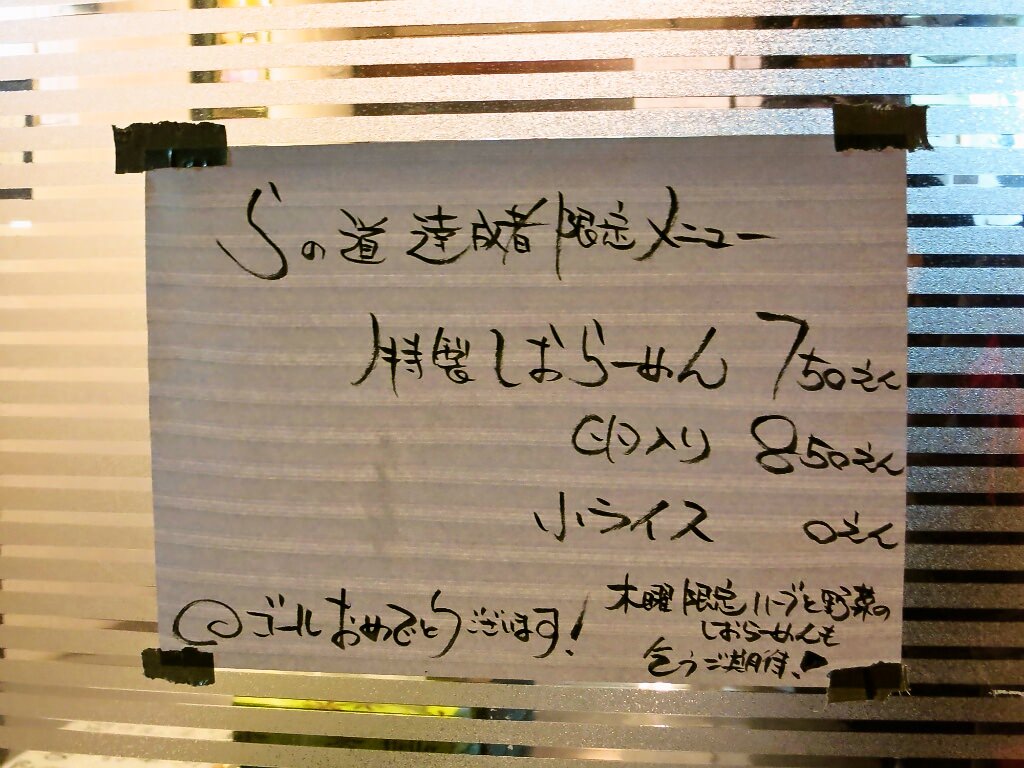 らの道達成者限定メニュー
特製しおらーめん 750えん
卵入り 850えん
小ライス 0えん
ゴールおめでとうございます!
木曜限定ハーブと野菜の
しおらーめんも
乞うご期待!